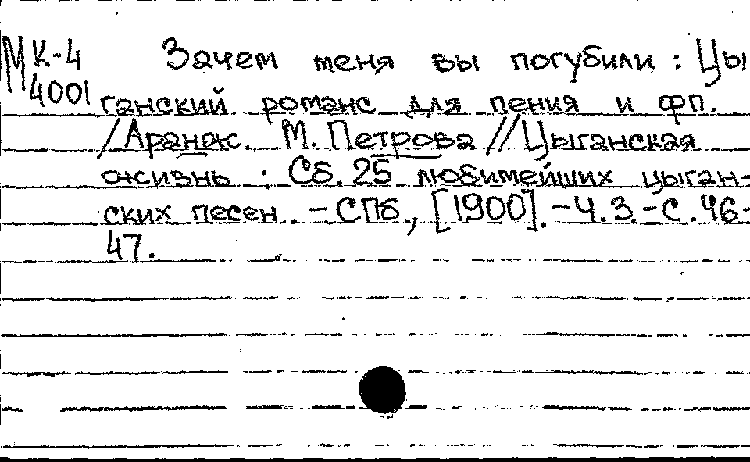 МК-4
4001
Зачем меня вы погубили : Цы
ганский романс для пения и фп.
/Аранж. М. Петрова // Цыганская
жизнь : Сб. 25 любимейших цыган-
ских песен. – СПб., [1900]. – Ч. 3. – С. 46-
47.